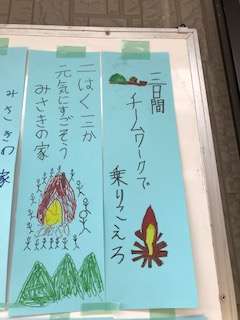 三日間
チームワークで
乗りこえろ
二はく三か
元気にすごそう
みさきの家
みさきの家